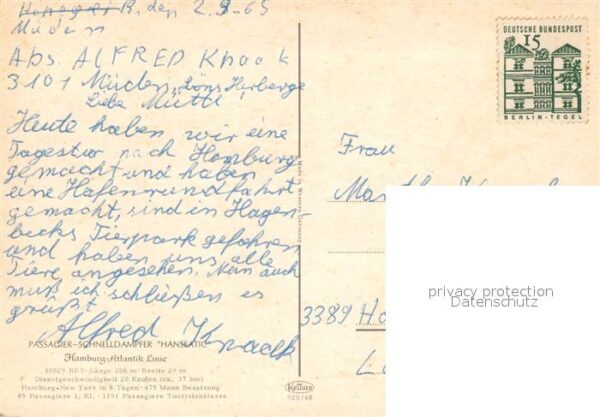 B, den 2.9.65
Müden
Abs. ALFRED Knaak
3101 Müden, Löns Herberge
Liebe Mutti!
Heute haben wir eine
Tagestur nach Hamburg
gemacht und haben
eine Hafenrundfahrt
gemacht, sind in Hagen-
becks Tierpark gefahren
und haben uns alle
Tiere angesehen. Nun auch
muß ich schließen es
grüßt
Alfred Knaak
PASSAGIER-SCHNELLDAMPFER "HANSEATIC"
Hamburg-Atlantik Linie
30029 BRT · Länge 206 m · Breite 29 m
Dienstgeschwindigkeit 20 Knoten (ca. 37 km)
Hamburg-New York in 8 Tagen · 475 Mann Besatzung
85 Passagiere I. Kl. · 1191 Passagiere Touristenklasse
Made in Western Germany
DEUTSCHE BUNDESPOST
15
BERLIN-TEGEL
Frau
3389
Krüger
920/48
privacy protection
Datenschutz